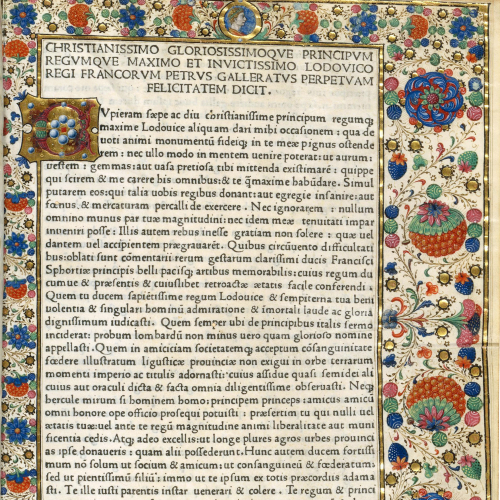 CHRISTIANISSIMO GLORIOSISSIMOQVE PRINCIPVM
REGVMQVE MAXIMO ET INVICTISSIMO LODOVICO
REGI FRANCORVM PETRVS GALLERATVS PERPETVAM
FELICITATEM DICIT.
CVpieram sæpe ac diu christianissime principum regumq;
maxime Lodouice aliquam dari mihi occasionem: qua de
uoti animi monumentū fideiq; in te meæ pignus ostende
rem: nec ullo modo in mentem uenire poterat: ut aurum:
uestem: gemmas: aut uasa pretiosa tibi mittenda existimarē: quippe
qui scirem & me carere his omnibus: & te q̄maxime habūdare. Simul
putarem eos: qui talia uobis regibus donant: aut egregie insanire: aut
fœnus, & mercaturam percalli de exercere. Nec ignoratem: nullum
omnino munus par tuæ magnitudini: nec idem meæ tenuitati impar
inueniri posse: Illis autem rebus inesse gratiam non solere: quæ uel
dantem uel accipientem prægrauarēt. Quibus circūuento difficultat
bus: oblati sunt cōmentarii rerum gestarum clarissimi ducis Francisci
Sphortiæ principis belli pacisq; artibus memorabilis: cuius regum du
cumue & præsentis & cuiuslibet retroactæ ætatis facile conferendi.
Quem tu ducem sapiētissime regum Lodouice & sempiterna tua beni
uolentia & singulari hominū admiratione & imortali laude ac gloria
dignissimum iudicasti. Quem semper ubi de principibus italis sermo
inciderat: probum lombardū non minus uero quam glorioso nomine
appellasti. Quem in amicitiam societatemq; acceptum cōsanguinitatc
fœdere illustratum ligusticæ prouinciæ non exigui in orbe terrarum
momenti imperio ac titulis adornasti: cuius assidue quasi semidei ali
cuius aut oraculi dicta & facta omnia diligentissime obseruasti. Neq;
hercule mirum si bominem homo: principem princeps: amicus amicū
omni honore ope officio prosequi potuisti: præsertim tu qui nulli uel
ætatis tuæ: uel ante te regū magnitudine animi liberalitate aut muni
ficentia cedis. Atq; adeo excellis: ut longe plures agros urbes prouinci
as ipse donaueris: quam alii possederunt. Hunc autem ducem fortissi
mum nō solum ut socium & amicum: ut consanguineū & fœderatum:
sed ut pientissimū filiū: immo ut te ipsum ex totis præcordiis adama
sti. Te ille iusti parentis instar uenerari & colere. Te regum & princi